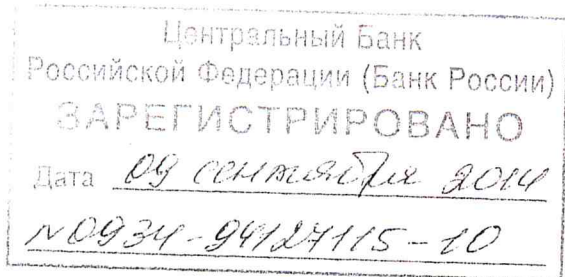 Центральный Банк
Российской Федерации (Банк России)
ЗАРЕГИСТРИРОВАНО
Дата 09 сентября 2014
N0934-94127115-10